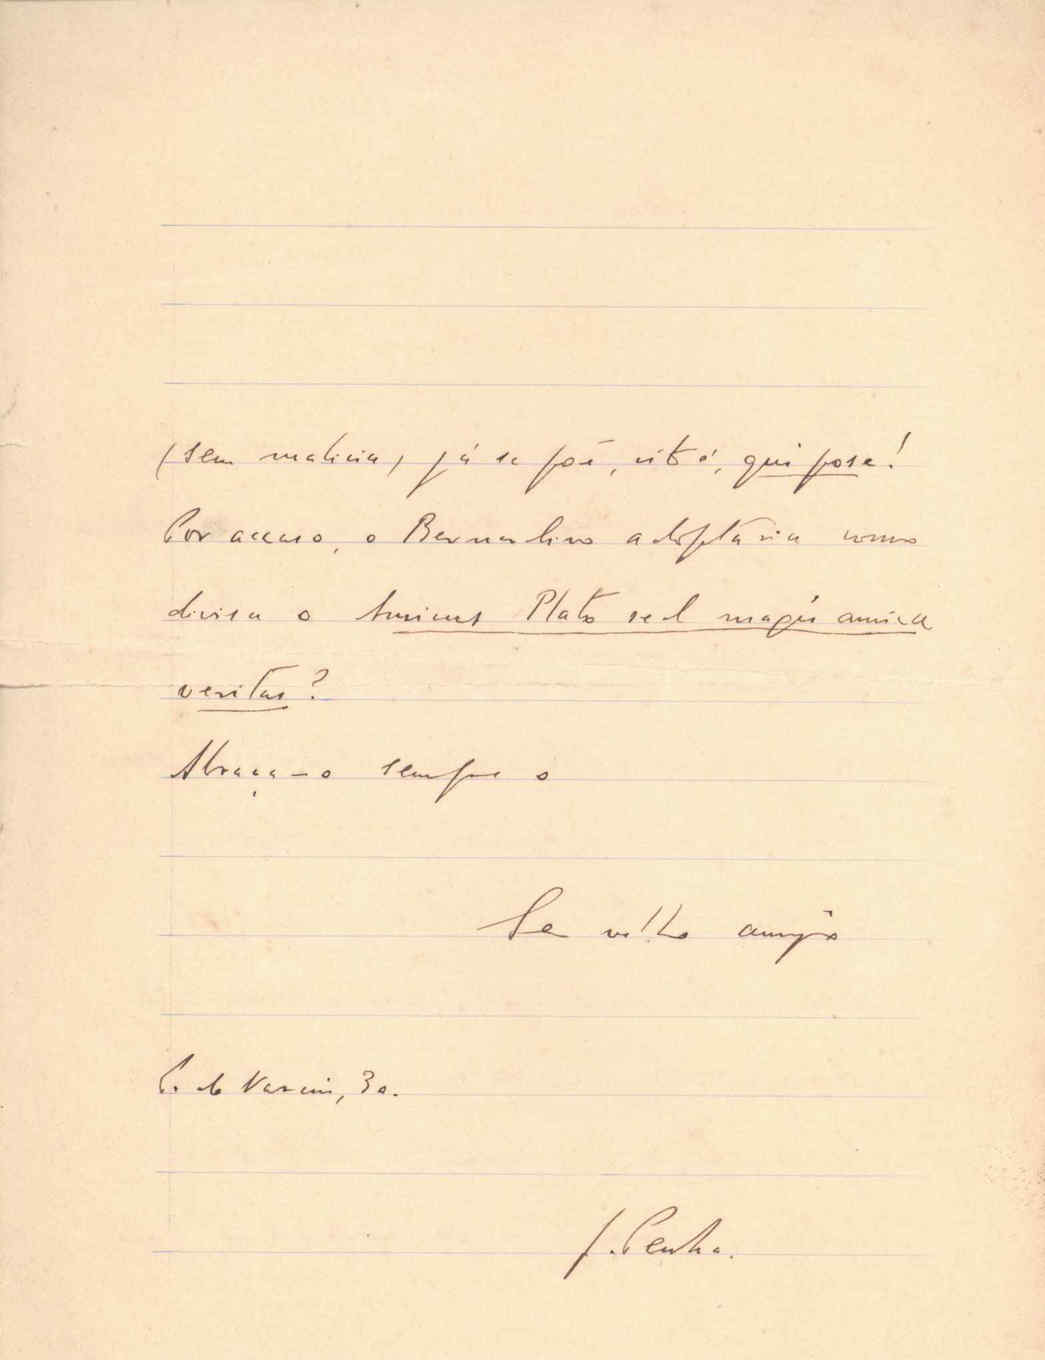 (sem malicia) já se põe, isto é, qui pose!
Por accaso, o Bernardino adoptaria como
divisa o Amicus Plato sed magis amica
veritas?
Abraça-o sempre o
Seu velho amigo
C. de 30.
J. Penha.